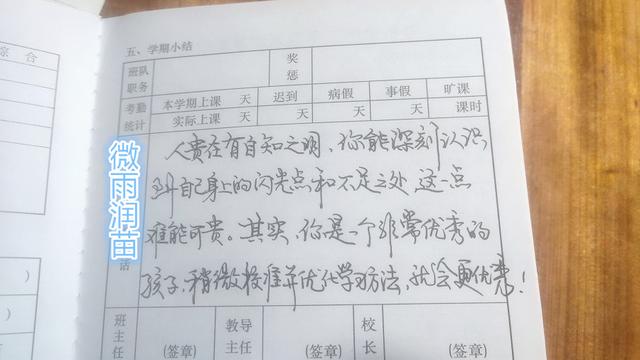 综 合
五、学期小结
班队
职务
奖
惩
考勤
统计
本学期上课 天 迟到 病假 事假 旷课
实际上课 天 天 天 天 课时
人贵在有自知之明，你能深刻认识
到自己身上的闪光点和不足之处，这一点
难能可贵。其实，你是一个非常优秀的
孩子，稍微校准并优化学习方法，就会更优秀！
话
微雨润苗
班
主
任
(签章)
教导
主任
(签章)
校
长
(签章)